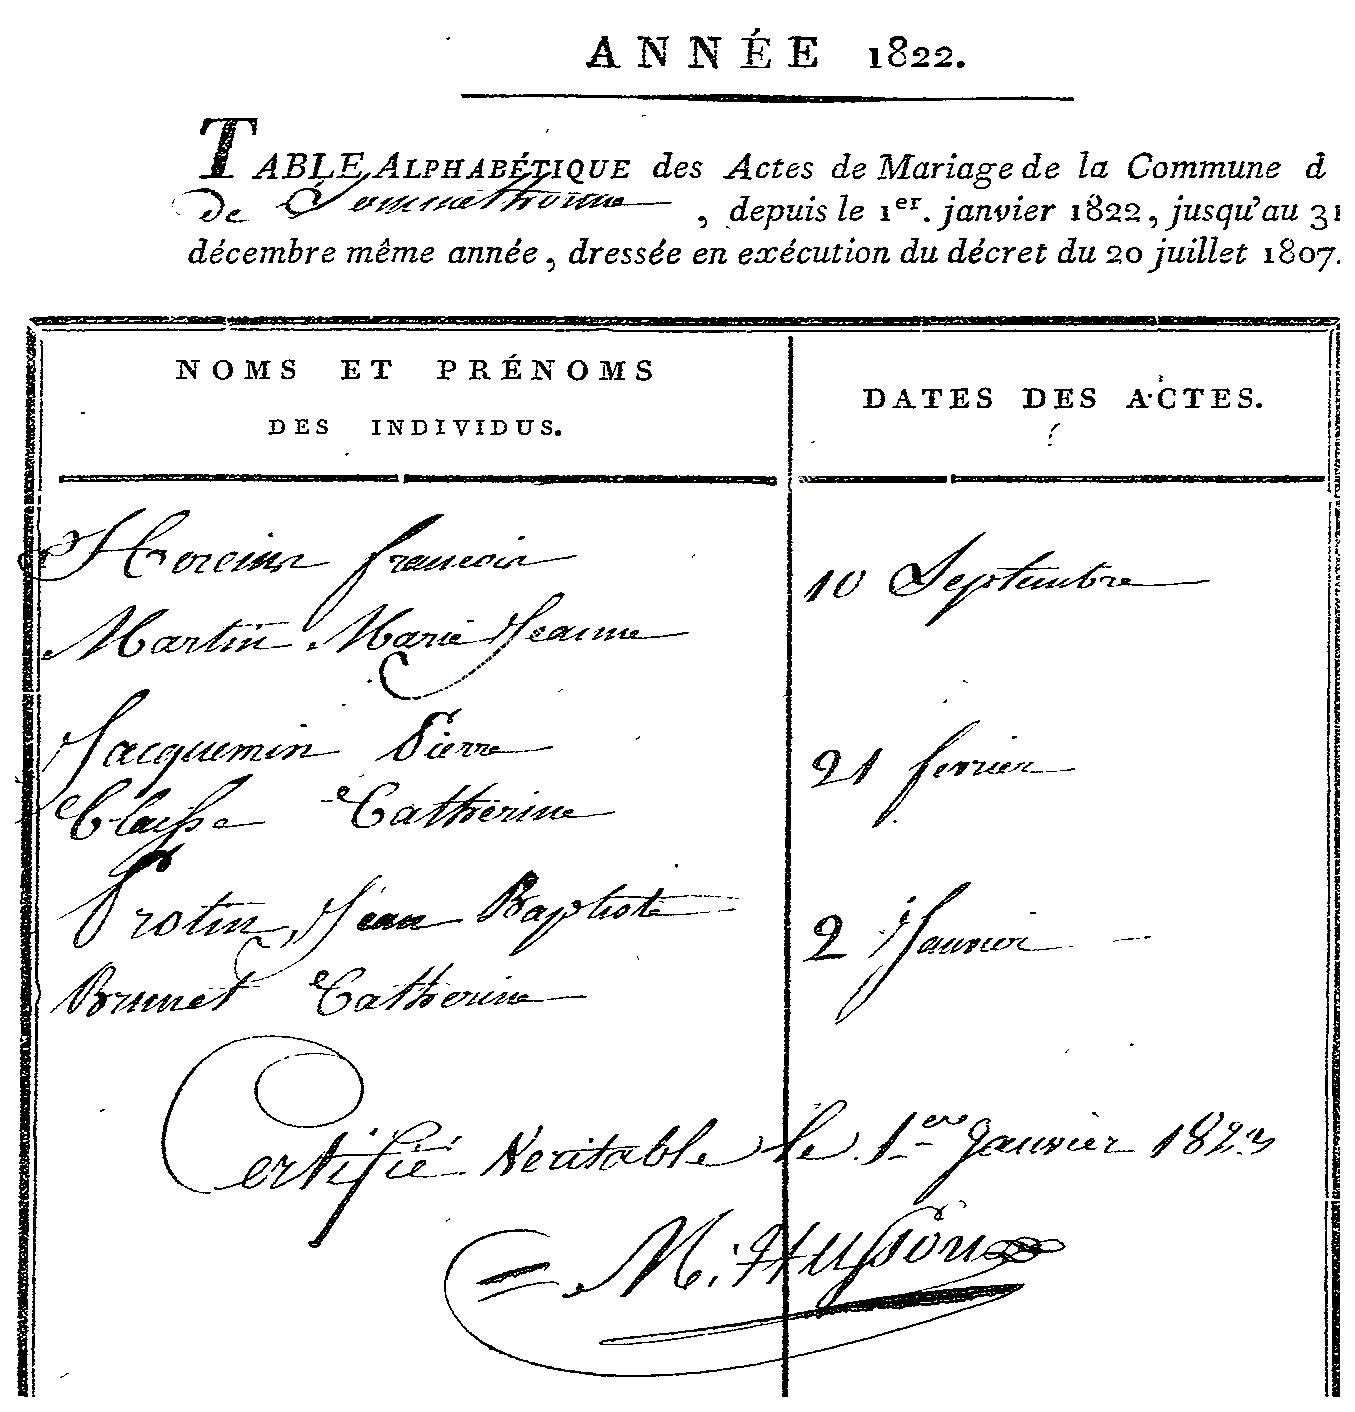 ANNÉE 1822.
TABLE ALPHABÉTIQUE des Actes de Mariage de la Commune d
de Sommethonne, depuis le 1er. janvier 1822, jusqu'au 31
décembre même année, dressée en exécution du décret du 20 juillet 1807.
NOMS ET PRÉNOMS
DES INDIVIDUS.
DATES DES ACTES.
francois
10 Septembre
Martin Marie Jeanne
Jacquemin Pierre
21 fevrier
Claisse Catherine
Protin, Jean Baptiste
2 Janvier
Brunet Catherine
Certifié Véritable le 1er Janvier 1823
M. Husson